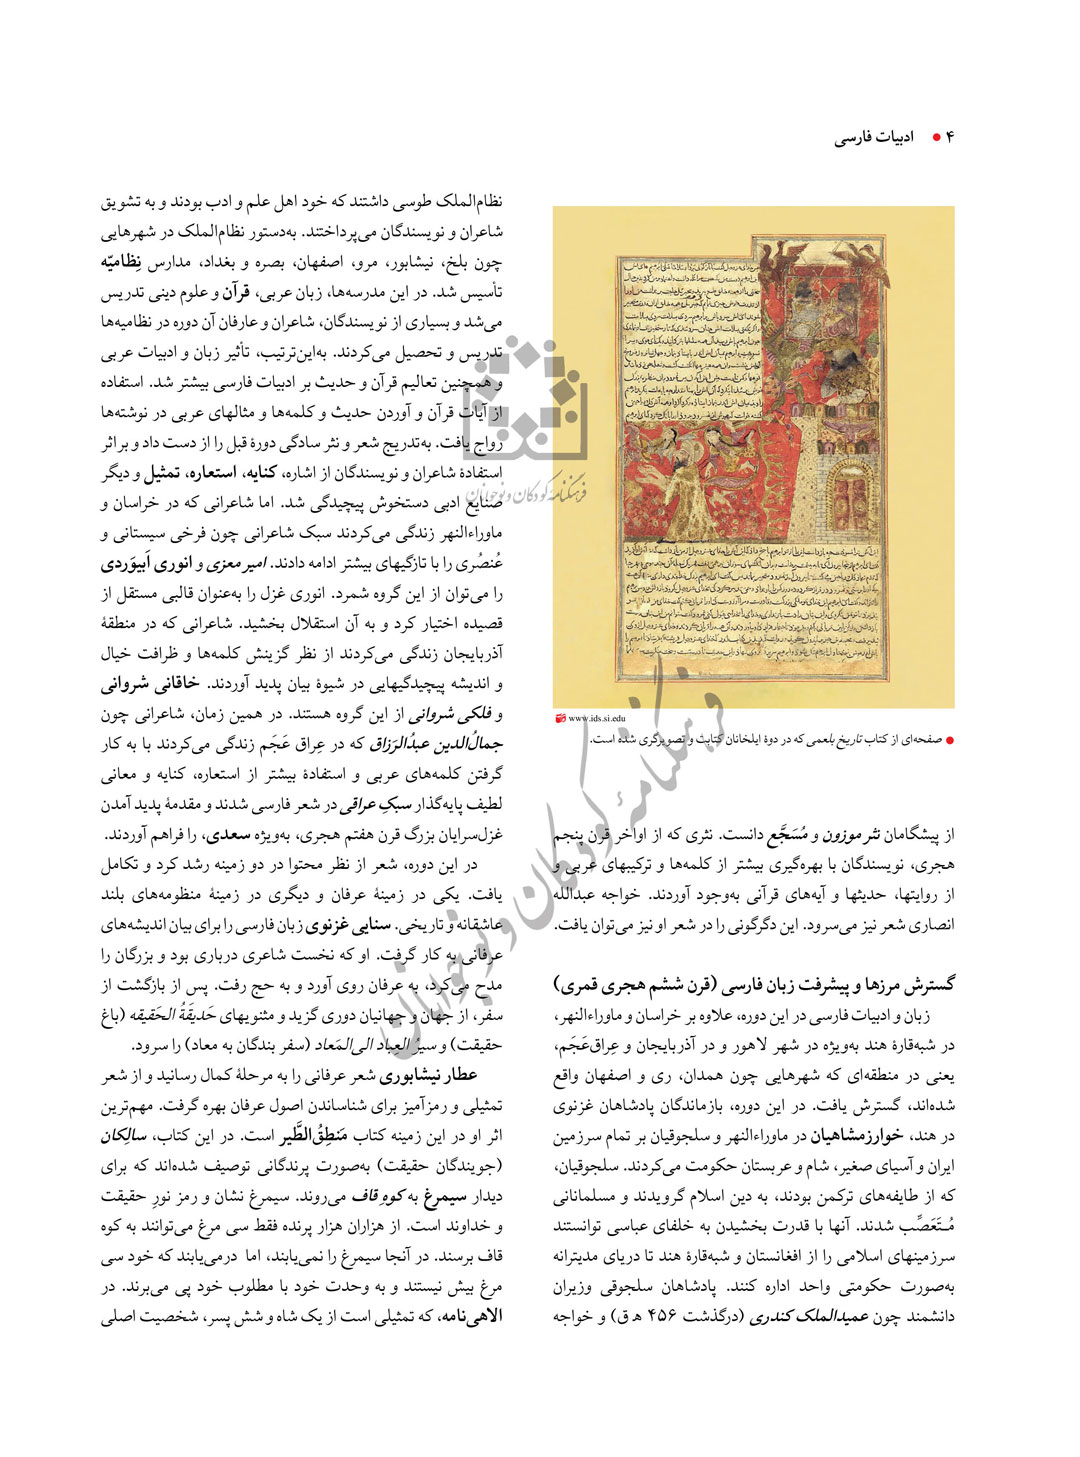 ۴ • ادبیات فارسی
www.ids.si.edu
• صفحه‌ای از کتاب تاریخ بلعمی که در دورهٔ ایلخانان کتابت و تصویرگری شده است.
از پیشگامان نثر موزون و مُسَجَّع دانست. نثری که از اواخر قرن پنجم
هجری، نویسندگان با بهره‌گیری بیشتر از کلمه‌ها و ترکیبهای عربی و
از روایتها، حدیثها و آیه‌های قرآنی به‌وجود آوردند. خواجه عبدالله
انصاری شعر نیز می‌سرود. این دگرگونی را در شعر او نیز می‌توان یافت.
گسترش مرزها و پیشرفت زبان فارسی (قرن ششم هجری قمری)
زبان و ادبیات فارسی در این دوره، علاوه بر خراسان و ماوراءالنهر،
در شبه‌قارهٔ هند به‌ویژه در شهر لاهور و در آذربایجان و عِراق‌عَجَم،
یعنی در منطقه‌ای که شهرهایی چون همدان، ری و اصفهان واقع
شده‌اند، گسترش یافت. در این دوره، بازماندگان پادشاهان غزنوی
در هند، خوارزمشاهیان در ماوراءالنهر و سلجوقیان بر تمام سرزمین
ایران و آسیای صغیر، شام و عربستان حکومت می‌کردند. سلجوقیان،
که از طایفه‌های ترکمن بودند، به دین اسلام گرویدند و مسلمانانی
مُـتَعَصِّب شدند. آنها با قدرت بخشیدن به خلفای عباسی توانستند
سرزمینهای اسلامی را از افغانستان و شبه‌قارهٔ هند تا دریای مدیترانه
به‌صورت حکومتی واحد اداره کنند. پادشاهان سلجوقی وزیران
دانشمند چون عمیدالملک کندری (درگذشت ۴۵۶ ه‍ ق) و خواجه
نظام‌الملک طوسی داشتند که خود اهل علم و ادب بودند و به تشویق
شاعران و نویسندگان می‌پرداختند. به‌دستور نظام‌الملک در شهرهایی
چون بلخ، نیشابور، مرو، اصفهان، بصره و بغداد، مدارس نِظامیّه
تأسیس شد. در این مدرسه‌ها، زبان عربی، قرآن و علوم دینی تدریس
می‌شد و بسیاری از نویسندگان، شاعران و عارفان آن دوره در نظامیه‌ها
تدریس و تحصیل می‌کردند. به‌این‌ترتیب، تأثیر زبان و ادبیات عربی
و همچنین تعالیم قرآن و حدیث بر ادبیات فارسی بیشتر شد. استفاده
از آیات قرآن و آوردن حدیث و کلمه‌ها و مثالهای عربی در نوشته‌ها
رواج یافت. به‌تدریج شعر و نثر سادگی دورهٔ قبل را از دست داد و بر اثر
استفادهٔ شاعران و نویسندگان از اشاره، کنایه، استعاره، تمثیل و دیگر
صنایع ادبی دستخوش پیچیدگی شد. اما شاعرانی که در خراسان و
ماوراءالنهر زندگی می‌کردند سبک شاعرانی چون فرخی سیستانی و
عُنصُری را با تازگیهای بیشتر ادامه دادند. امیر معزی و انوری اَبیوَردی
را می‌توان از این گروه شمرد. انوری غزل را به‌عنوان قالبی مستقل از
قصیده اختیار کرد و به آن استقلال بخشید. شاعرانی که در منطقهٔ
آذربایجان زندگی می‌کردند از نظر گزینش کلمه‌ها و ظرافت خیال
و اندیشه پیچیدگیهایی در شیوهٔ بیان پدید آوردند. خاقانی شروانی
و فلکی شروانی از این گروه هستند. در همین زمان، شاعرانی چون
جمالُ‌الدین عبدُالرَزاق که در عِراق عَجَم زندگی می‌کردند با به کار
گرفتن کلمه‌های عربی و استفادهٔ بیشتر از استعاره، کنایه و معانی
لطیف پایه‌گذار سبکِ عراقی در شعر فارسی شدند و مقدمهٔ پدید آمدن
غزل‌سرایان بزرگ قرن هفتم هجری، به‌ویژه سعدی، را فراهم آوردند.
در این دوره، شعر از نظر محتوا در دو زمینه رشد کرد و تکامل
یافت. یکی در زمینهٔ عرفان و دیگری در زمینهٔ منظومه‌های بلند
عاشقانه و تاریخی. سنایی غزنوی زبان فارسی را برای بیان اندیشه‌های
عرفانی به کار گرفت. او که نخست شاعری درباری بود و بزرگان را
مدح می‌کرد، به عرفان روی آورد و به حج رفت. پس از بازگشت از
سفر، از جهان و جهانیان دوری گزید و مثنویهای حَدیقَةُ الحَقیقه (باغ
حقیقت) و سیرُ العِباد الی‌المَعاد (سفر بندگان به معاد) را سرود.
عطار نیشابوری شعر عرفانی را به مرحلهٔ کمال رسانید و از شعر
تمثیلی و رمزآمیز برای شناساندن اصول عرفان بهره گرفت. مهم‌ترین
اثر او در این زمینه کتاب مَنطِقُ‌الطَّیر است. در این کتاب، سالِکان
(جویندگان حقیقت) به‌صورت پرندگانی توصیف شده‌اند که برای
دیدار سیمرغ به کوهِ قاف می‌روند. سیمرغ نشان و رمز نورِ حقیقت
و خداوند است. از هزاران هزار پرنده فقط سی مرغ می‌توانند به کوه
قاف برسند. در آنجا سیمرغ را نمی‌یابند، اما درمی‌یابند که خود سی
مرغ بیش نیستند و به وحدت خود با مطلوب خود پی می‌برند. در
الاهی‌نامه، که تمثیلی است از یک شاه و شش پسر، شخصیت اصلی
فرهنگنامهٔ کودکان و نوجوانان
فرهنگنامهٔ کودکان و نوجوانان